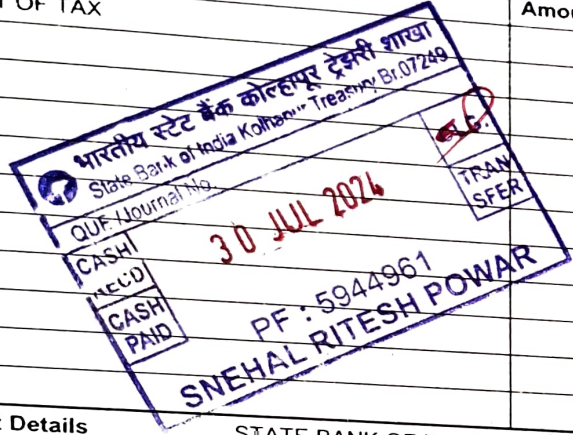 OF TAX
Amou
भारतीय स्टेट बैंक कोल्हापूर ट्रेझरी शाखा
State Bank of India Kolhapur Treasury Br.07249
QUE /Journal No.
CASH
REC'D
CASH
PAID
30 JUL 2024
TRAN
SFER
PF : 5944961
SNEHAL RITESH POWAR
Details
STATE BANK OF